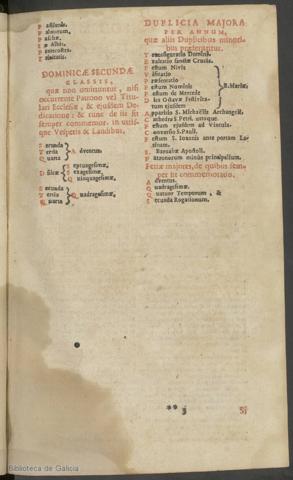 Passionis.
Palmarum,
Paschæ,
In Albis,
Pentecostes,
Trinitatis.
DOMINICÆ SECUNDÆ
CLASSIS,
quæ non omittuntur, nisi
occurrente Patrono vel Titu-
lari Ecclesiæ, & ejusdem De-
dicatione: & tunc de iis fit
semper commemor. in utris-
que Vesperis & Laudibus,
Secunda
Tertia Adventus.
Quarta
Septuagesimæ,
Dominicæ Sexagesimæ,
Quinquagesimæ,
Secunda
Tertia Quadragesimæ,
Quarta
DUPLICIA MAJORA
PER ANNUM,
quæ aliis Duplicibus minori-
bus præferuntur.
Transfiguratio Domini.
Exaltatio sanctæ Crucis.
Festum Nivis
Visitatio
Præsentatio
Festum Nominis B. Mariæ.
Festum de Mercede
Dies Octavæ Festivita-
tum ejusdem
Apparitio S. Michaëlis Archangeli,
Cathedra S. Petri, utraque.
Festum ejusdem ad Vincula.
Conversio S. Pauli.
Festum S. Joannis ante portam La-
tinam.
S. Barnabæ Apostoli.
Patronorum minus principalium.
Feriæ majores, de quibus sem-
per fit commemoratio.
Adventus.
Quadragesimæ.
Quatuor Temporum, &
Secunda Rogationum.
Si
Biblioteca de Galicia